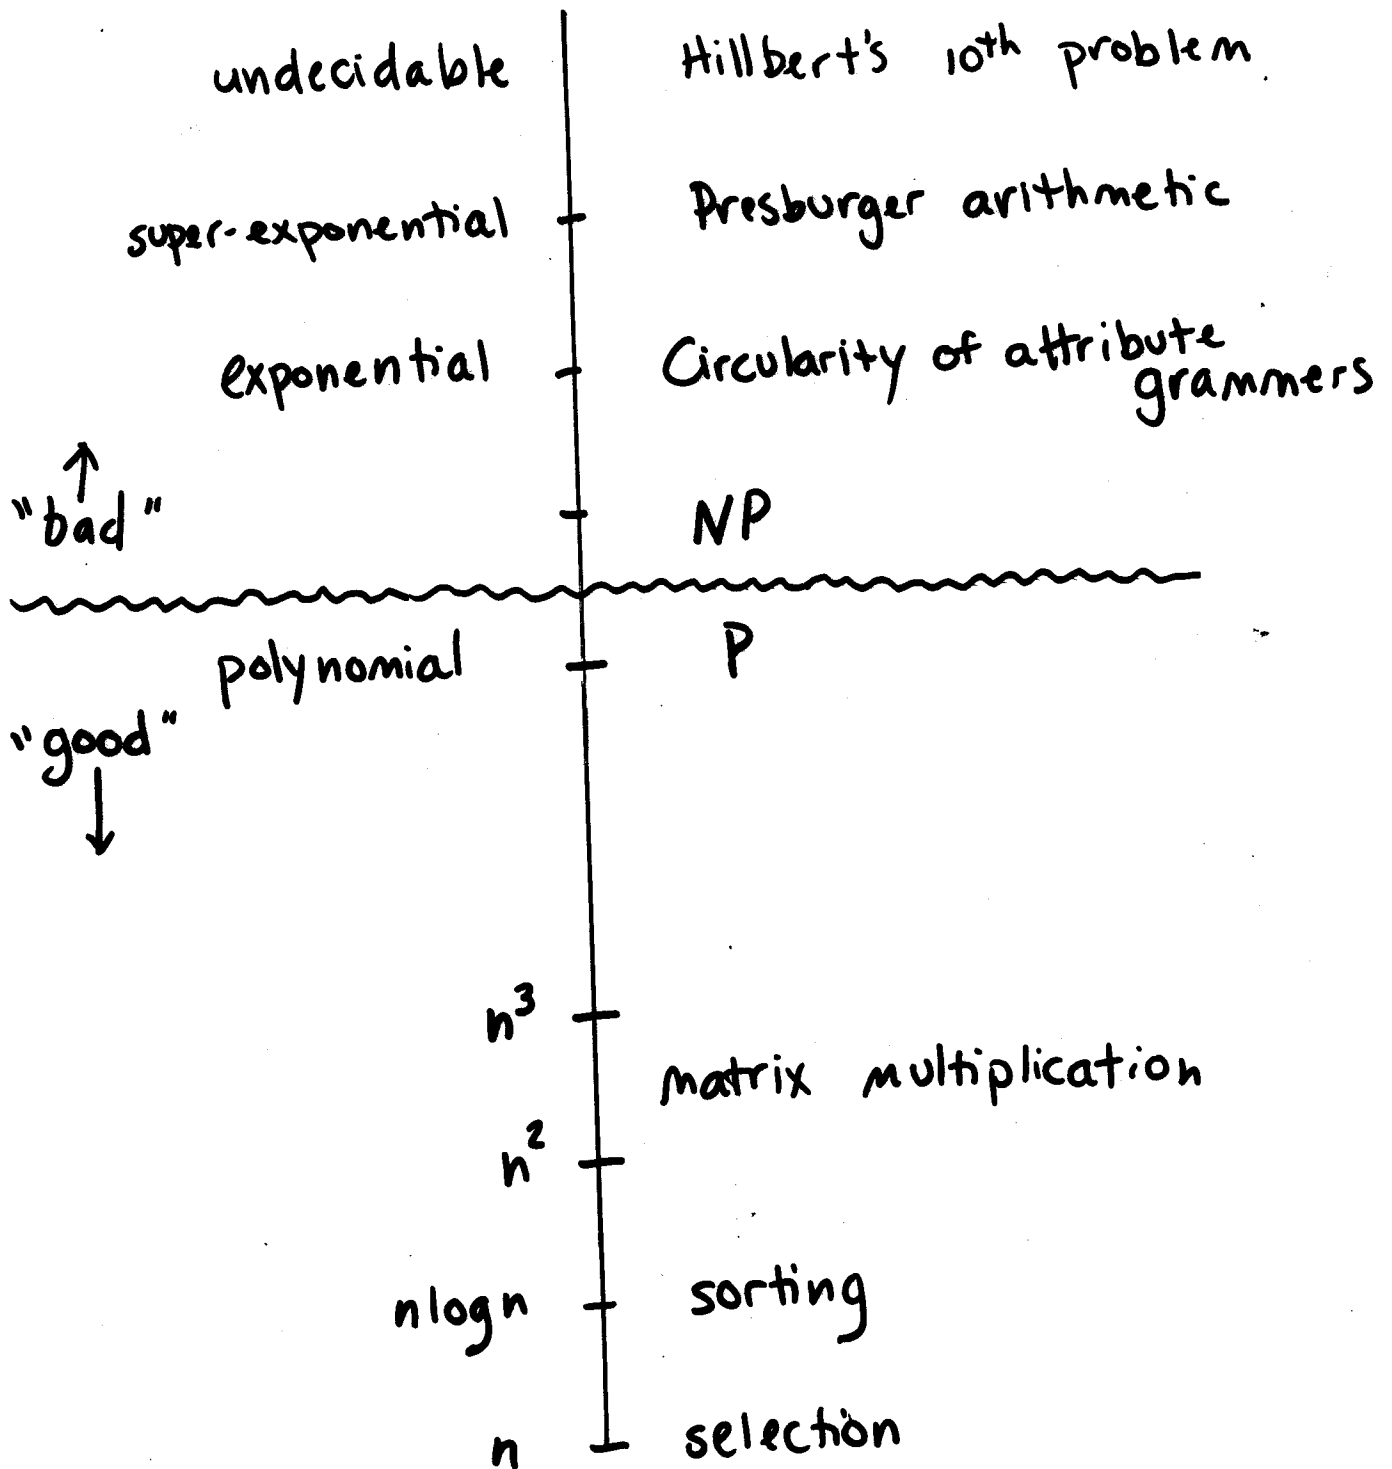 undecidable Hillbert's 10th problem
super-exponential Presburger arithmetic
exponential Circularity of attribute
grammers
"bad" NP
polynomial P
"good"
n³
matrix multiplication
n²
nlogn sorting
n selection